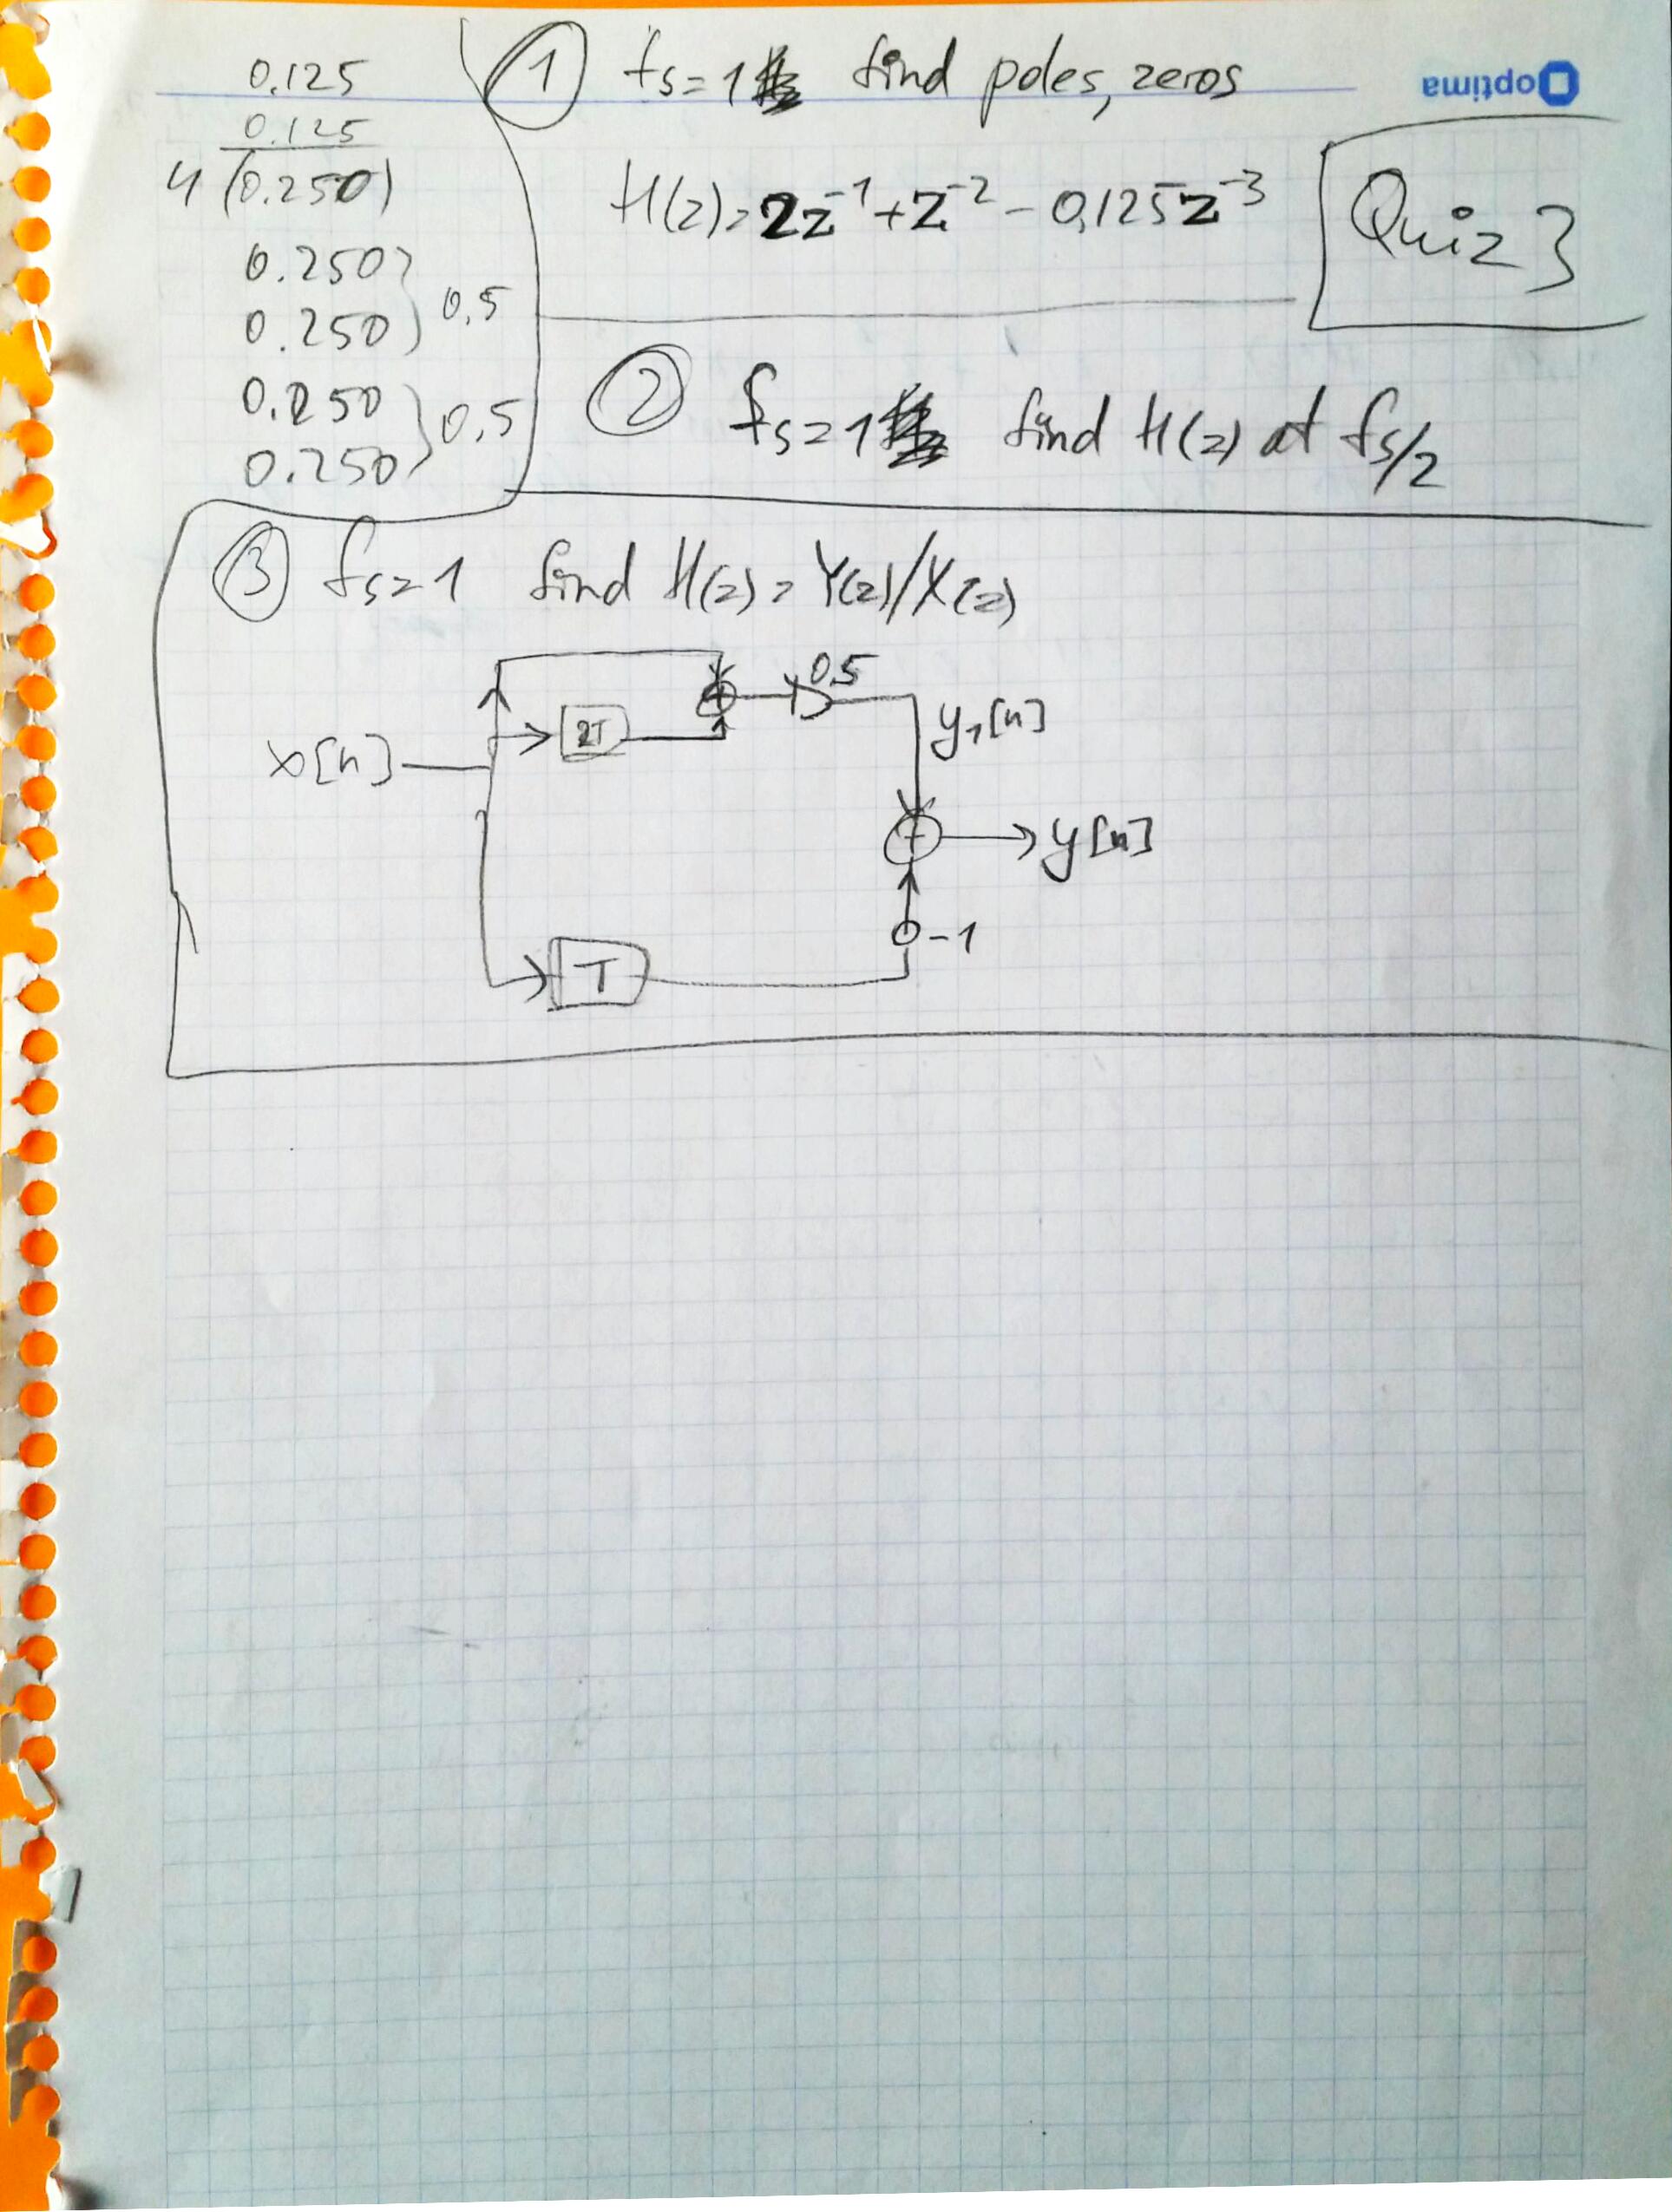 0.125
0.125
4 (0.250)
0.250
0.250 } 0,5
0.250
0.250 } 0,5
① fs=1 find poles, zeros
optima
H(z)=2z⁻¹+z⁻²-0,125z⁻³
Quiz 3
② fs=1 find H(z) at fs/2
③ fs=1 find H(z)=Y(z)/X(z)
0.5
2T
y₁[n]
x[n]
+
y[n]
-1
T